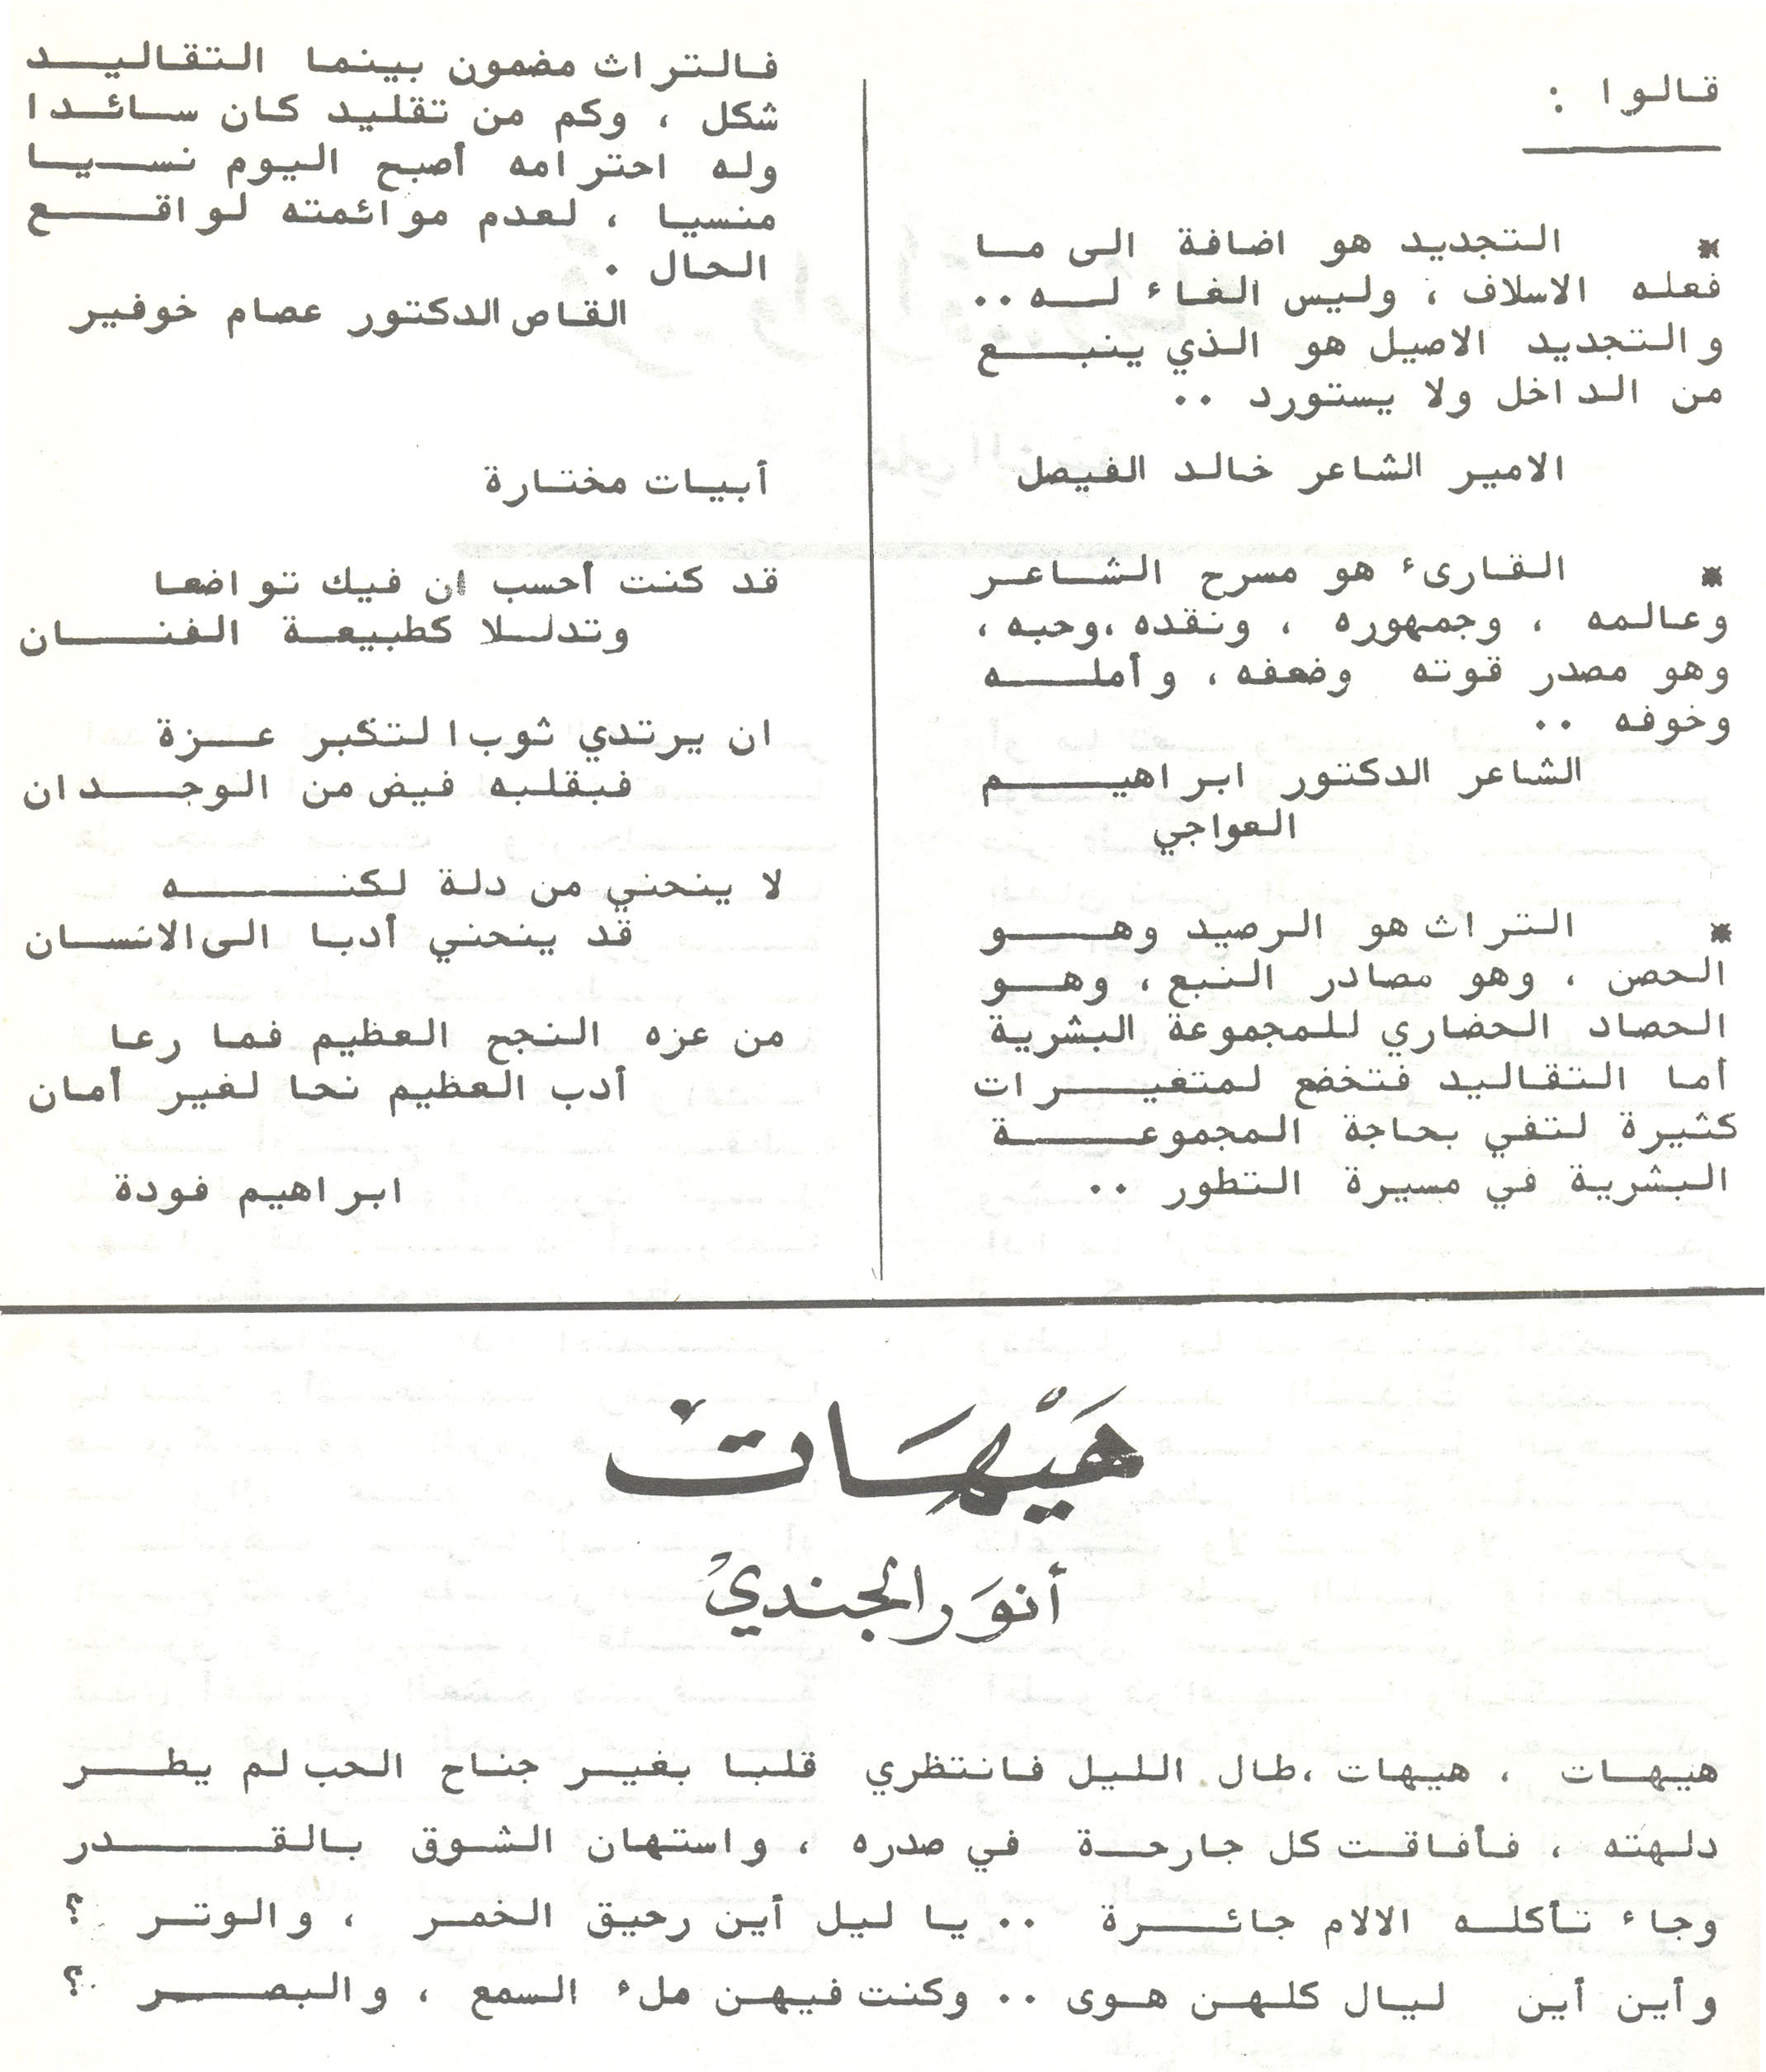 قالوا :
* التجديد هو اضافة الى ما
فعله الاسلاف ، وليس الغاء له ..
والتجديد الاصيل هو الذي ينبع
من الداخل ولا يستورد ..
الامير الشاعر خالد الفيصل
* القارىء هو مسرح الشاعر
وعالمه ، وجمهوره ، ونقده ،وحبه ،
وهو مصدر قوته وضعفه ، وأمله
وخوفه ..
الشاعر الدكتور ابراهيم
العواجي
* التراث هو الرصيد وهو
الحصن ، وهو مصادر النبع ، وهو
الحصاد الحضاري للمجموعة البشرية
أما التقاليد فتخضع لمتغيرات
كثيرة لتفي بحاجة المجموعة
البشرية في مسيرة التطور ..
فالتراث مضمون بينما التقاليد
شكل ، وكم من تقليد كان سائدا
وله احترامه أصبح اليوم نسيا
منسيا ، لعدم موائمته لواقع
الحال .
القاص الدكتور عصام خوقير
أبيات مختارة
قد كنت أحسب ان فيك تواضعا
وتدللا كطبيعة الفنان
ان يرتدي ثوب التكبر عزة
فبقلبه فيض من الوجدان
لا ينحني من دلة لكنه
قد ينحني أدبا الى الانسان
من عزه النجح العظيم فما رعا
أدب العظيم نحا لغير أمان
ابراهيم فودة
هَيْهَاتْ
أنوَر الجندي
هيهات ، هيهات ،طال الليل فانتظري قلبا بغير جناح الحب لم يطر
دلهته ، فأفاقت كل جارحة في صدره ، واستهان الشوق بالقدر
وجاء تأكله الالام جائرة .. يا ليل أين رحيق الخمر ، والوتر ؟
وأين أين ليال كلهن هوى .. وكنت فيهن ملء السمع ، والبصر ؟